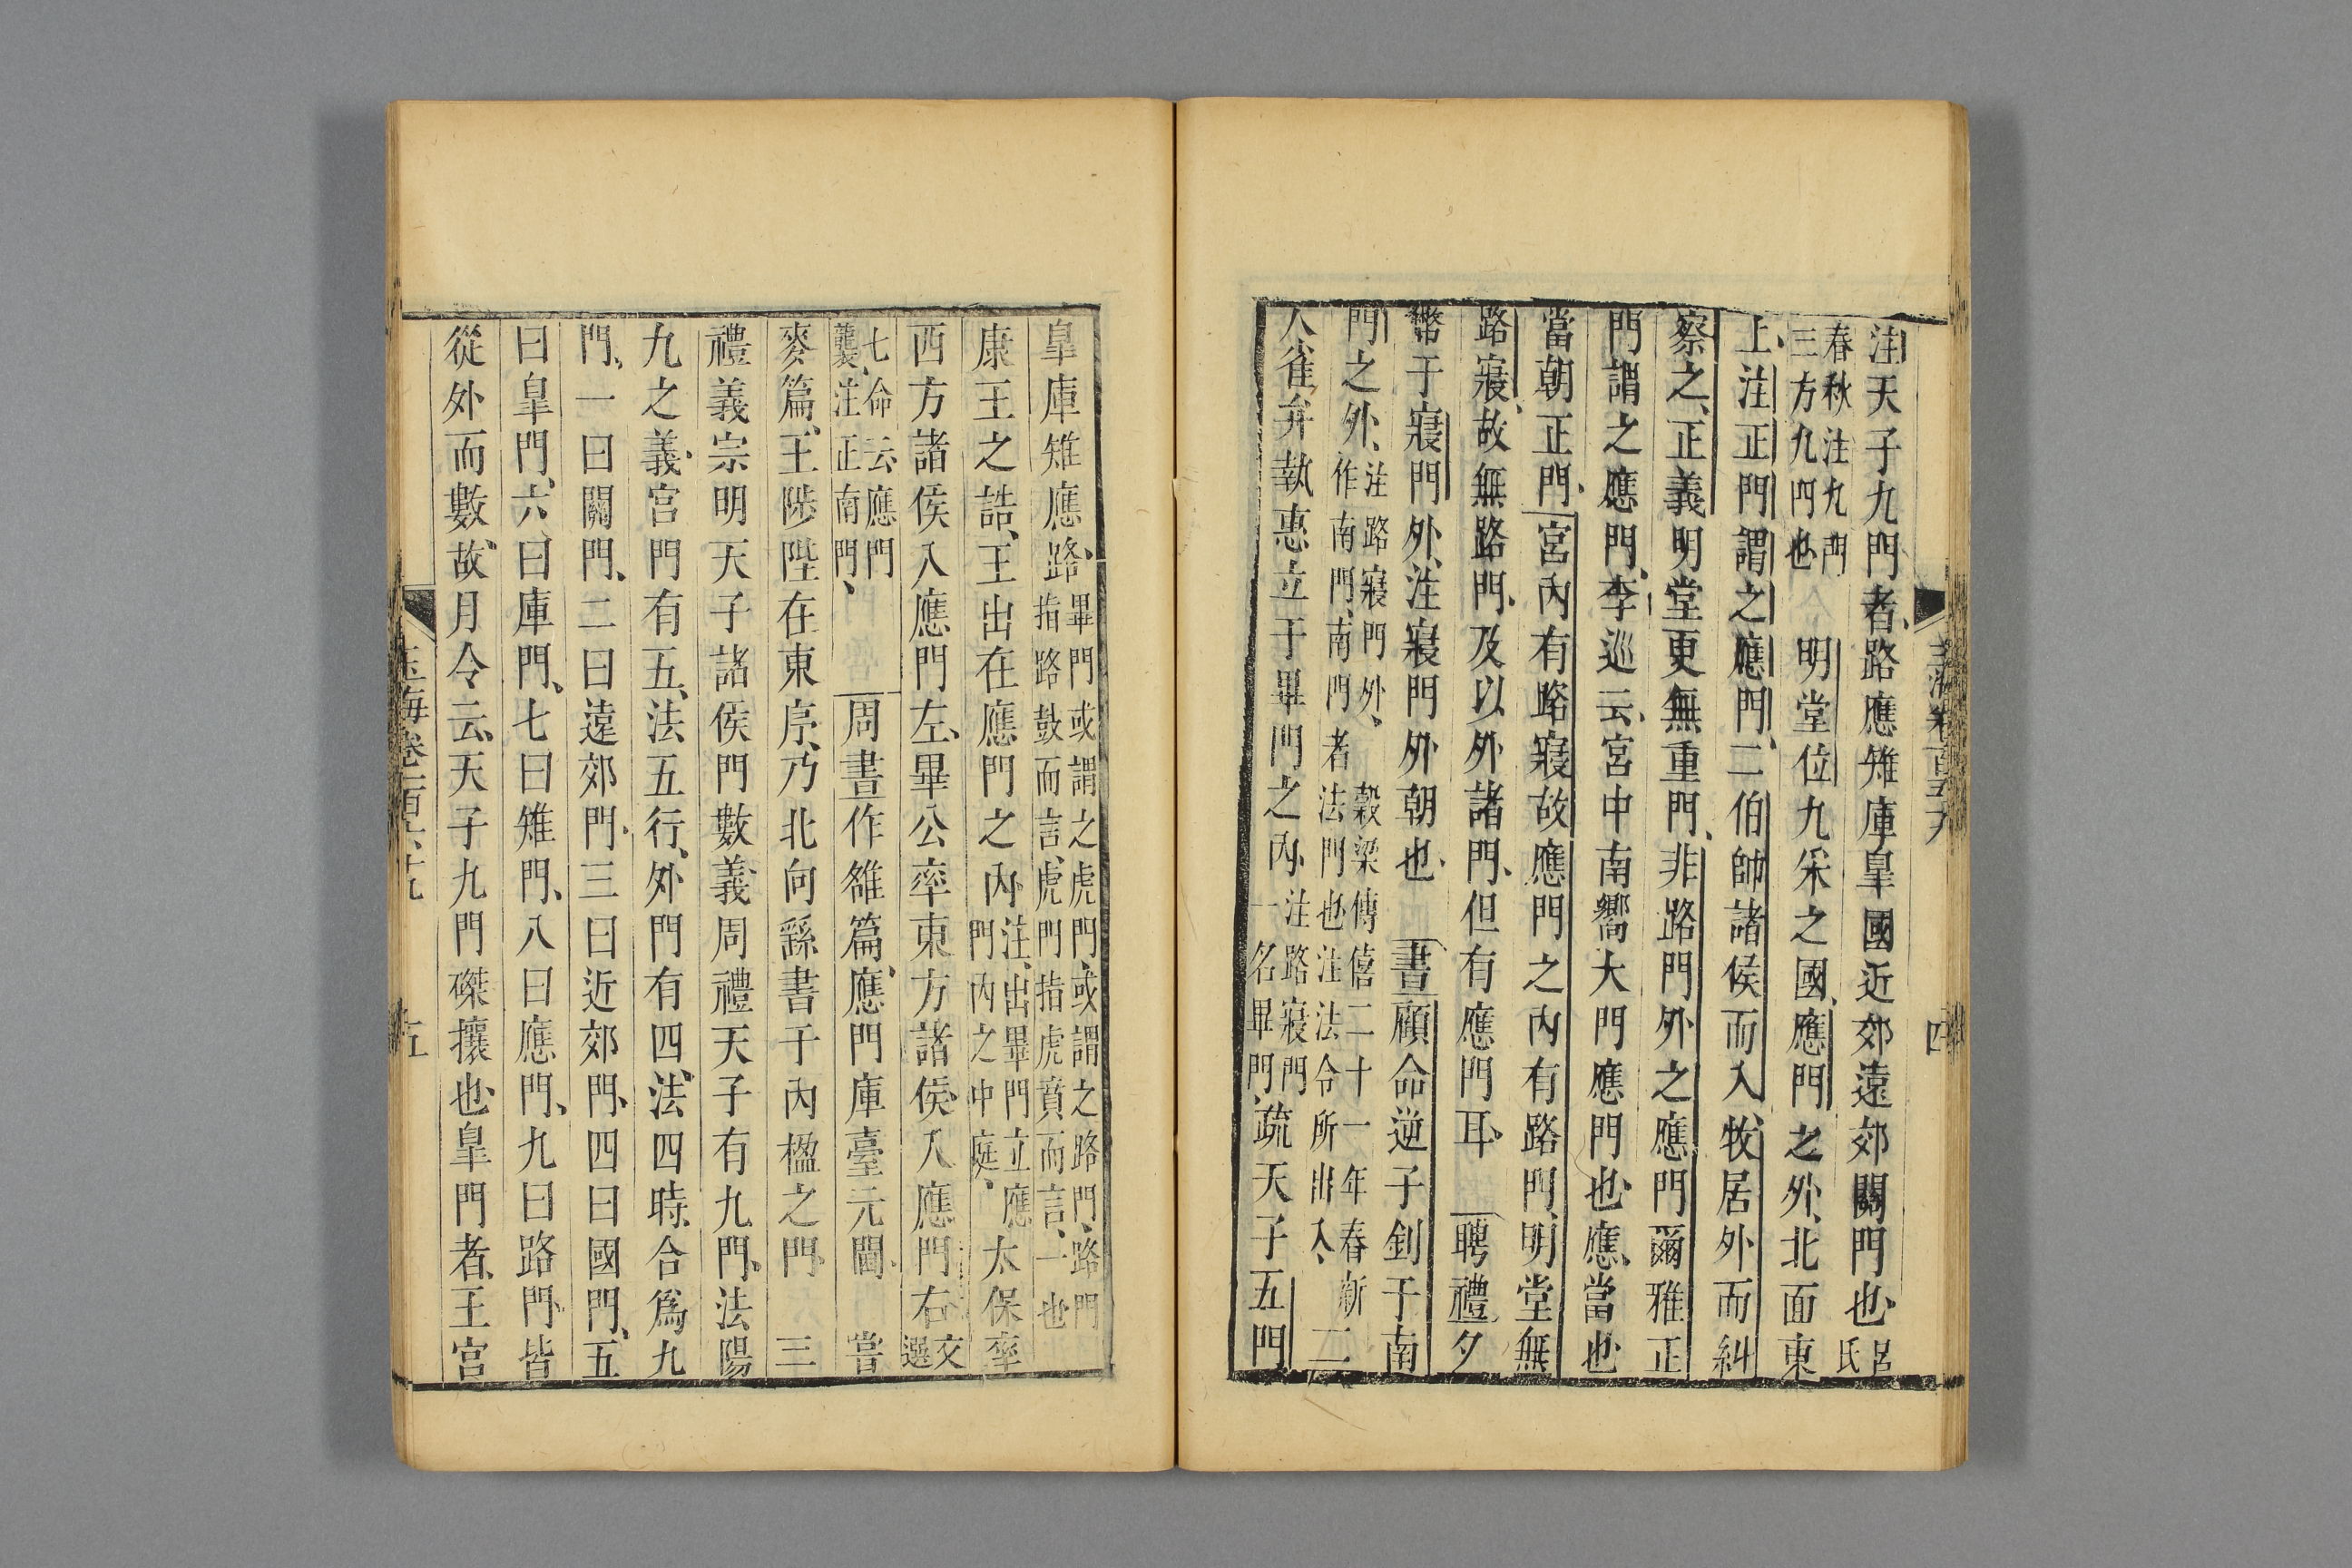 注天子九門者路應雉庫皐國近郊遠郊關門也呂氏
春秋注九門三方九門也明堂位九采之國應門之外北面東
上注正門謂之應門二伯帥諸侯而入牧居外而糾
察之正義明堂更無重門非路門外之應門爾雅正
門謂之應門李巡云宮中南嚮大門應門也應當也
當朝正門宮內有路寢故應門之內有路門明堂無
路寢故無路門及以外諸門但有應門耳聘禮夕
幣于寢門外注寢門外朝也書顧命逆子釗于南
門之外注路寢門外作南門南門者法門也穀梁傳僖二十一年春新法門也注法令所出入二
人雀弁執惠立于畢門之內注路寢門一名畢門疏天子五門
玉海卷百六十九 四
皐庫雉應路畢門或謂之虎門或謂之路門路門指路鼓而言虎門指虎賁而言一也
康王之誥王出在應門之內注出畢門立應門內之中庭太保率
西方諸侯入應門左畢公率東方諸侯入應門右文選
七命云應門襲注正南門周書作雒篇應門庫臺元閫嘗
麥篇王陟陛在東序乃北向繇書于內楹之門三
禮義宗明天子諸侯門數義周禮天子有九門法陽
九之義宮門有五法五行外門有四法四時合爲九
門一曰關門二曰遠郊門三曰近郊門四曰國門五
曰皐門六曰庫門七曰雉門八曰應門九曰路門皆
從外而數故月令云天子九門磔攘也皐門者王宮
玉海卷一百六十九 五